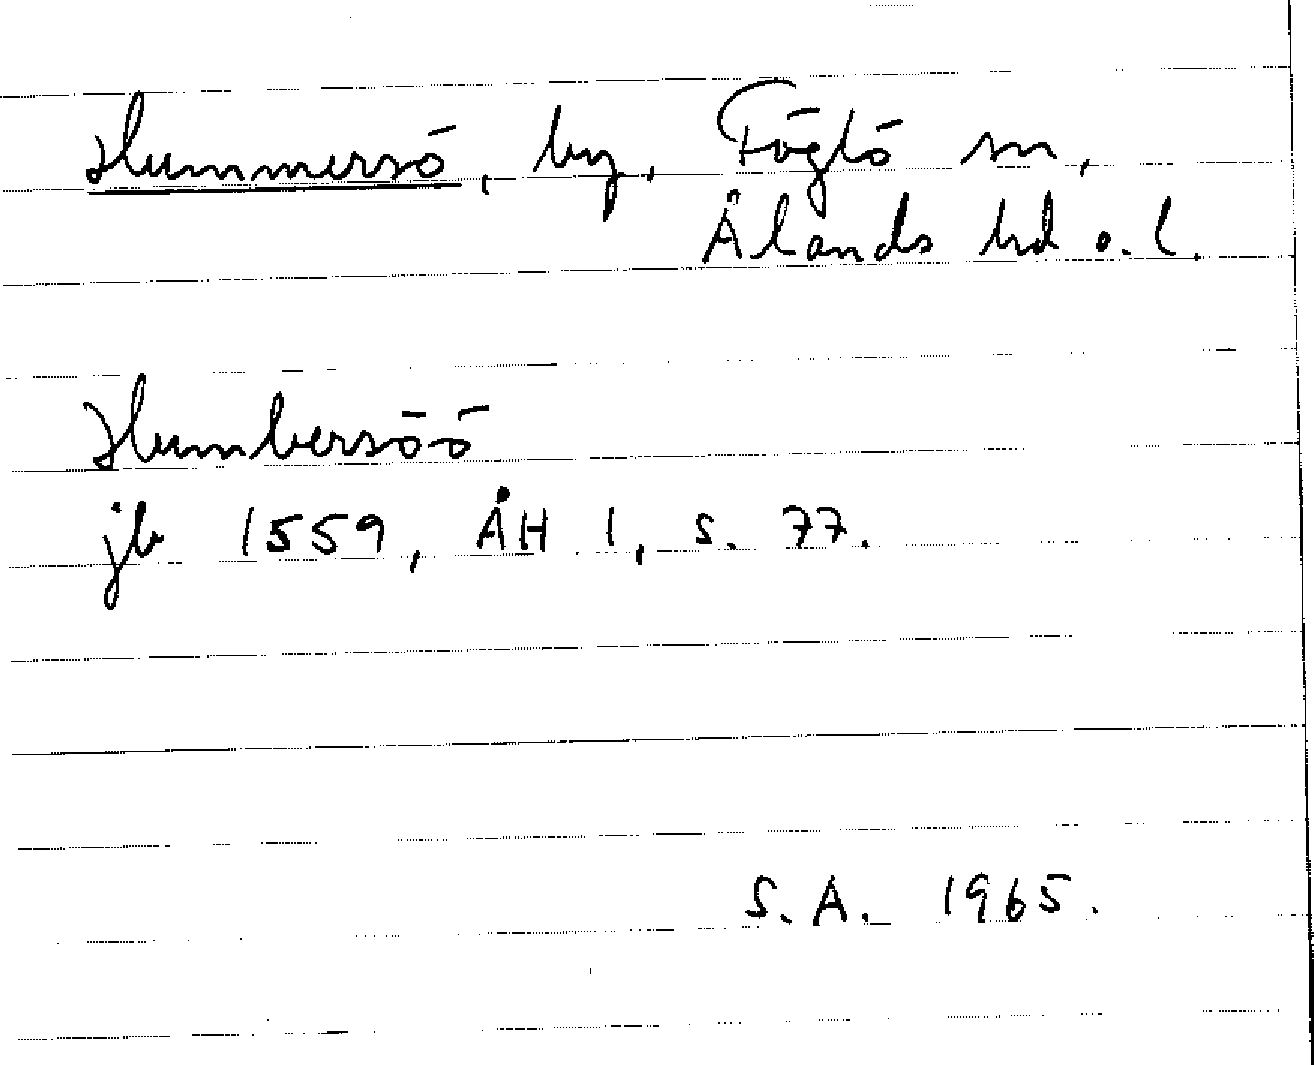 Hummersö, by, Föglö sn,
Ålands hd o. l.
Humbersöö
jb 1559, ÅH 1, s. 77.
S. A. 1965.